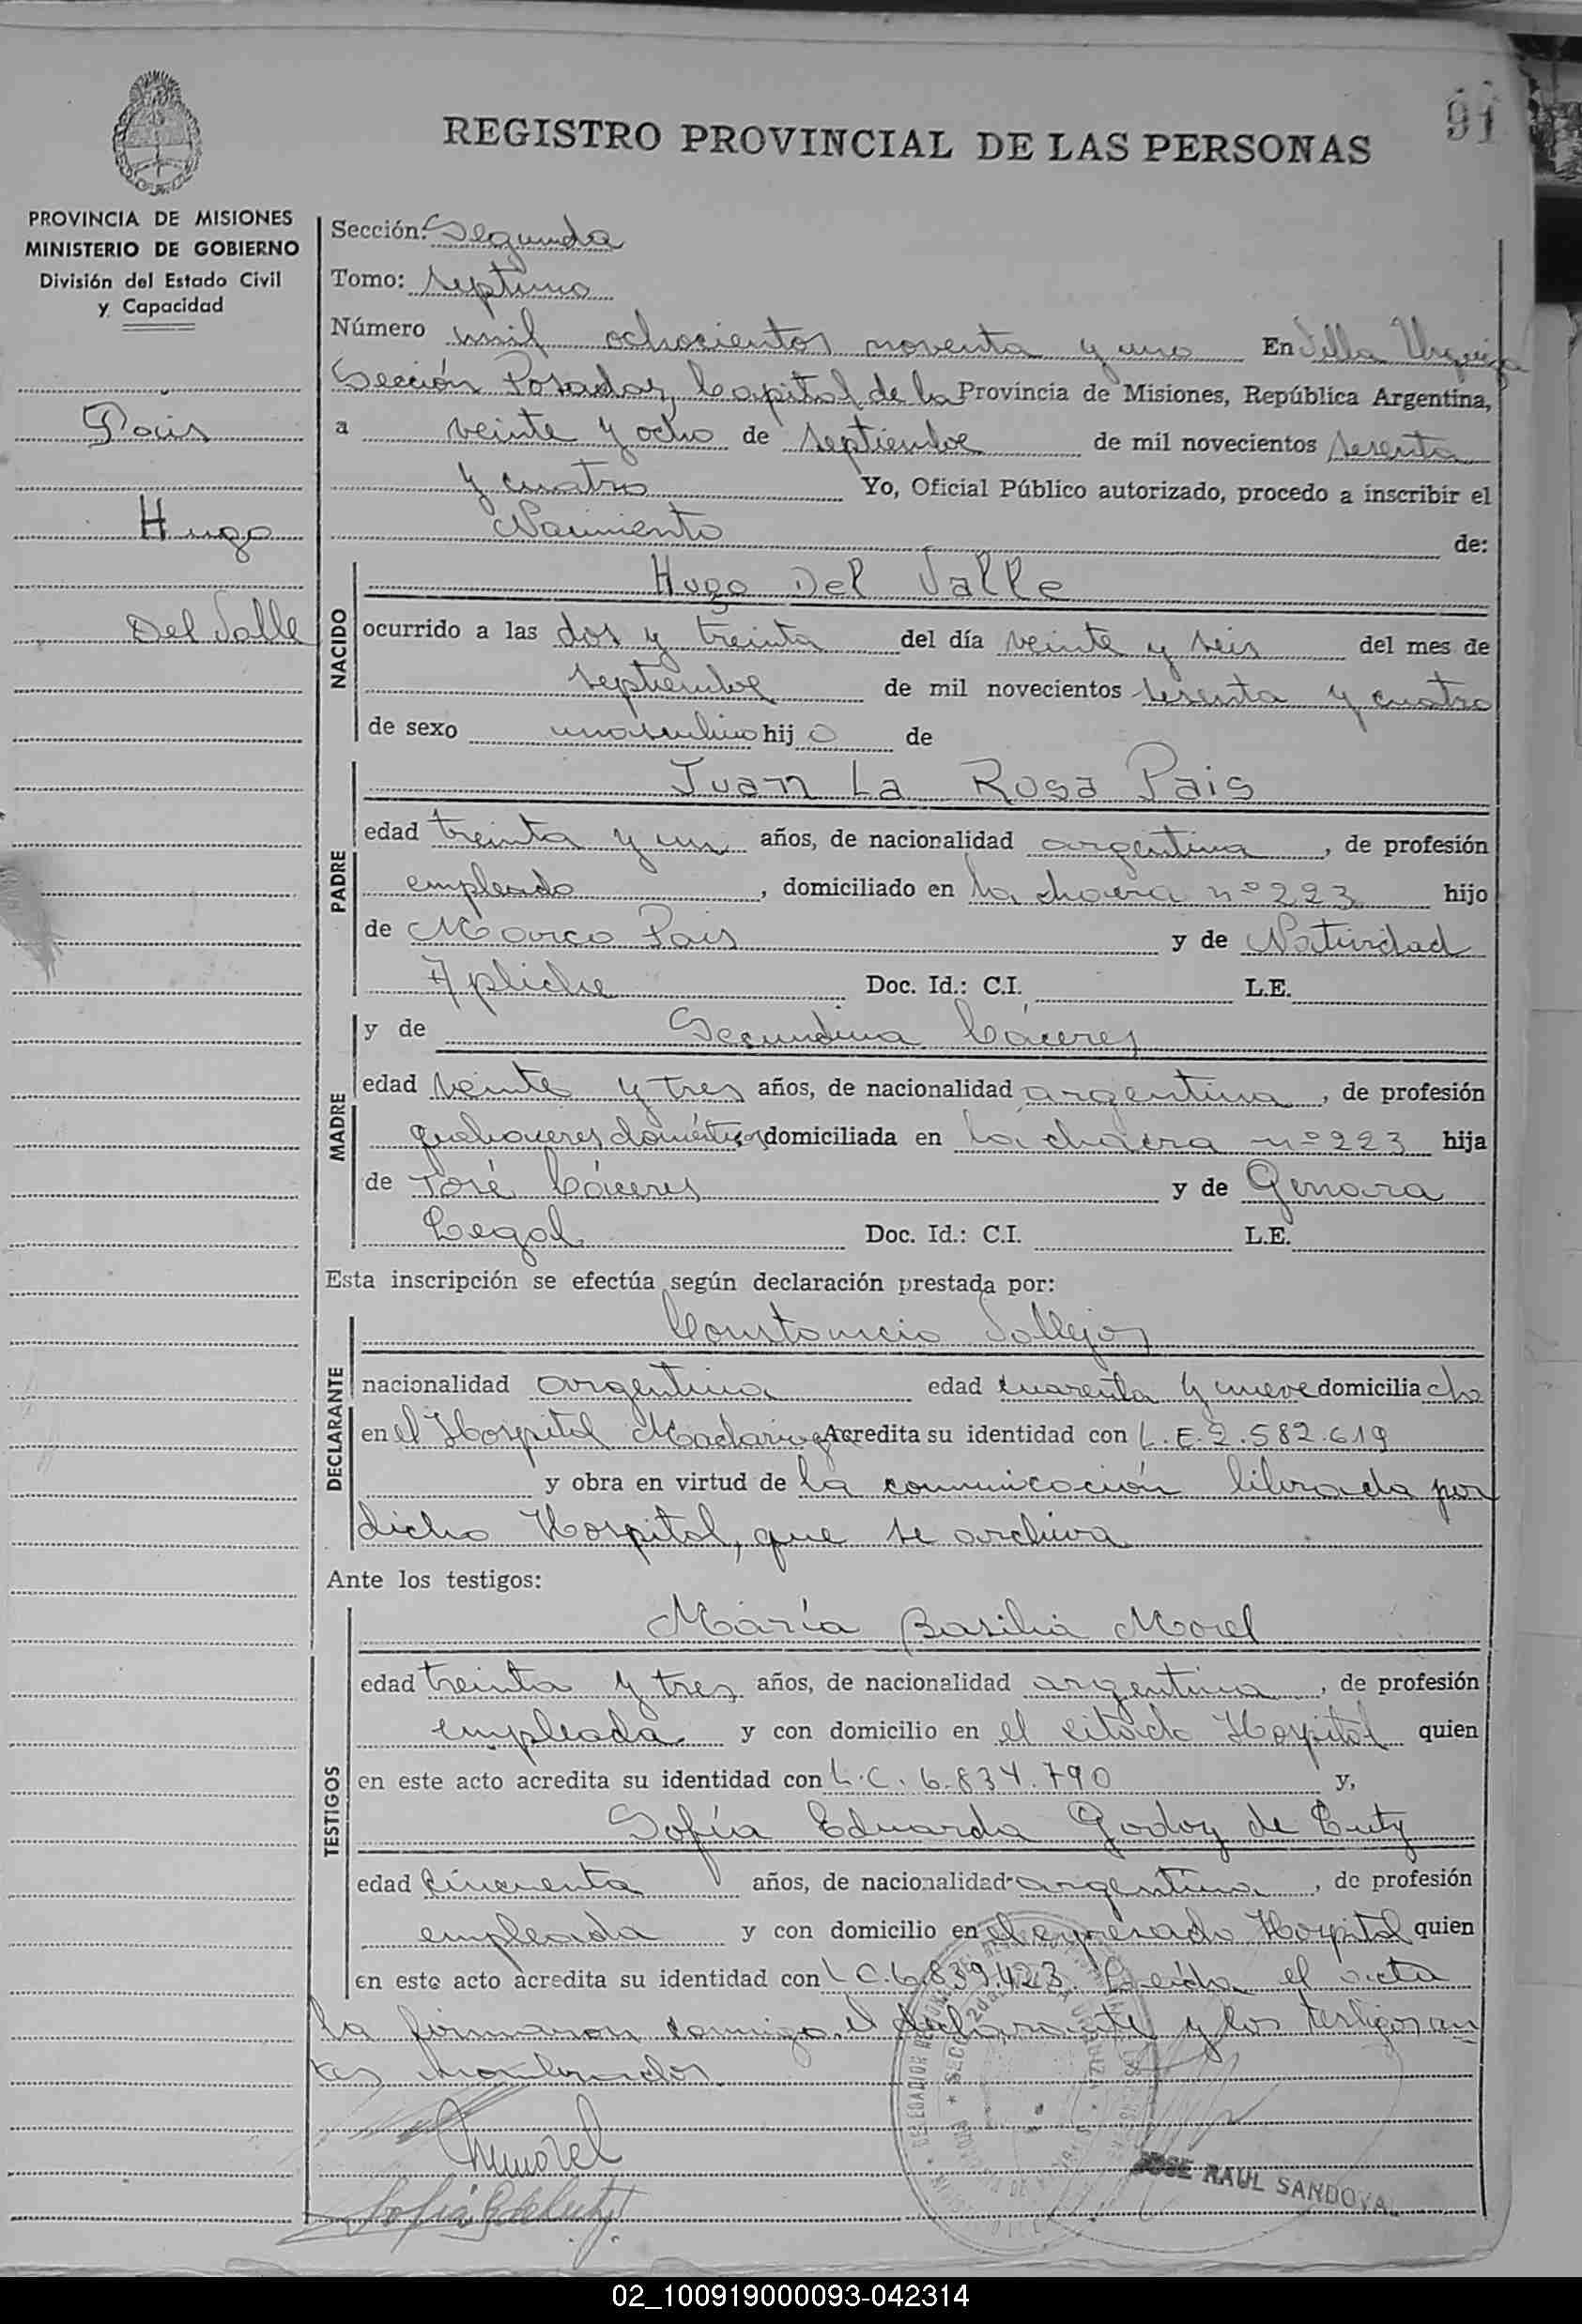 91
REGISTRO PROVINCIAL DE LAS PERSONAS
PROVINCIA DE MISIONES
MINISTERIO DE GOBIERNO
División del Estado Civil
y Capacidad
Pais
Hugo
Del Valle
Sección: Segunda
Tomo: septimo
Número mil ochocientos noventa y uno En Villa Urquiza
Sección Posadas, Capital de la Provincia de Misiones, República Argentina,
a veinte y ocho de septiembre de mil novecientos sesenta
y cuatro Yo, Oficial Público autorizado, procedo a inscribir el
Nacimiento de:
NACIDO
Hugo Del Valle
ocurrido a las dos y treinta del día veinte y seis del mes de
septiembre de mil novecientos sesenta y cuatro
de sexo masculino hijo de
PADRE
Juan La Rosa Pais
edad treinta y un años, de nacionalidad argentina, de profesión
empleado, domiciliado en la chacra nº 223 hijo
de Marco Pais y de Natividad
Apliche Doc. Id.: C.I. L.E.
MADRE
y de Secundina Cáceres
edad veinte y tres años, de nacionalidad argentina, de profesión
quehaceres domésticos, domiciliada en la chacra nº 223 hija
de José Cáceres y de Genara
Legal Doc. Id.: C.I. L.E.
Esta inscripción se efectúa según declaración prestada por:
DECLARANTE
Constancio Vallejos
nacionalidad argentina edad cuarenta y nueve domiciliado
en el Hospital Madariaga Acredita su identidad con L.E. 2.582.619
y obra en virtud de la comunicación librada por
dicho Hospital, que se archiva
Ante los testigos:
TESTIGOS
María Basilia Morel
edad treinta y tres años, de nacionalidad argentina, de profesión
empleada y con domicilio en el citado Hospital quien
en este acto acredita su identidad con L.C. 6.834.790 y,
Sofía Eduarda Godoy de Cuty
edad cincuenta años, de nacionalidad argentina, de profesión
empleada y con domicilio en el expresado Hospital quien
en este acto acredita su identidad con L C. 6.839.423. Leída el acta
la firmaron conmigo, el declarante y los testigos an
tes nombrados.
JOSE RAUL SANDOVAL
02_100919000093-042314